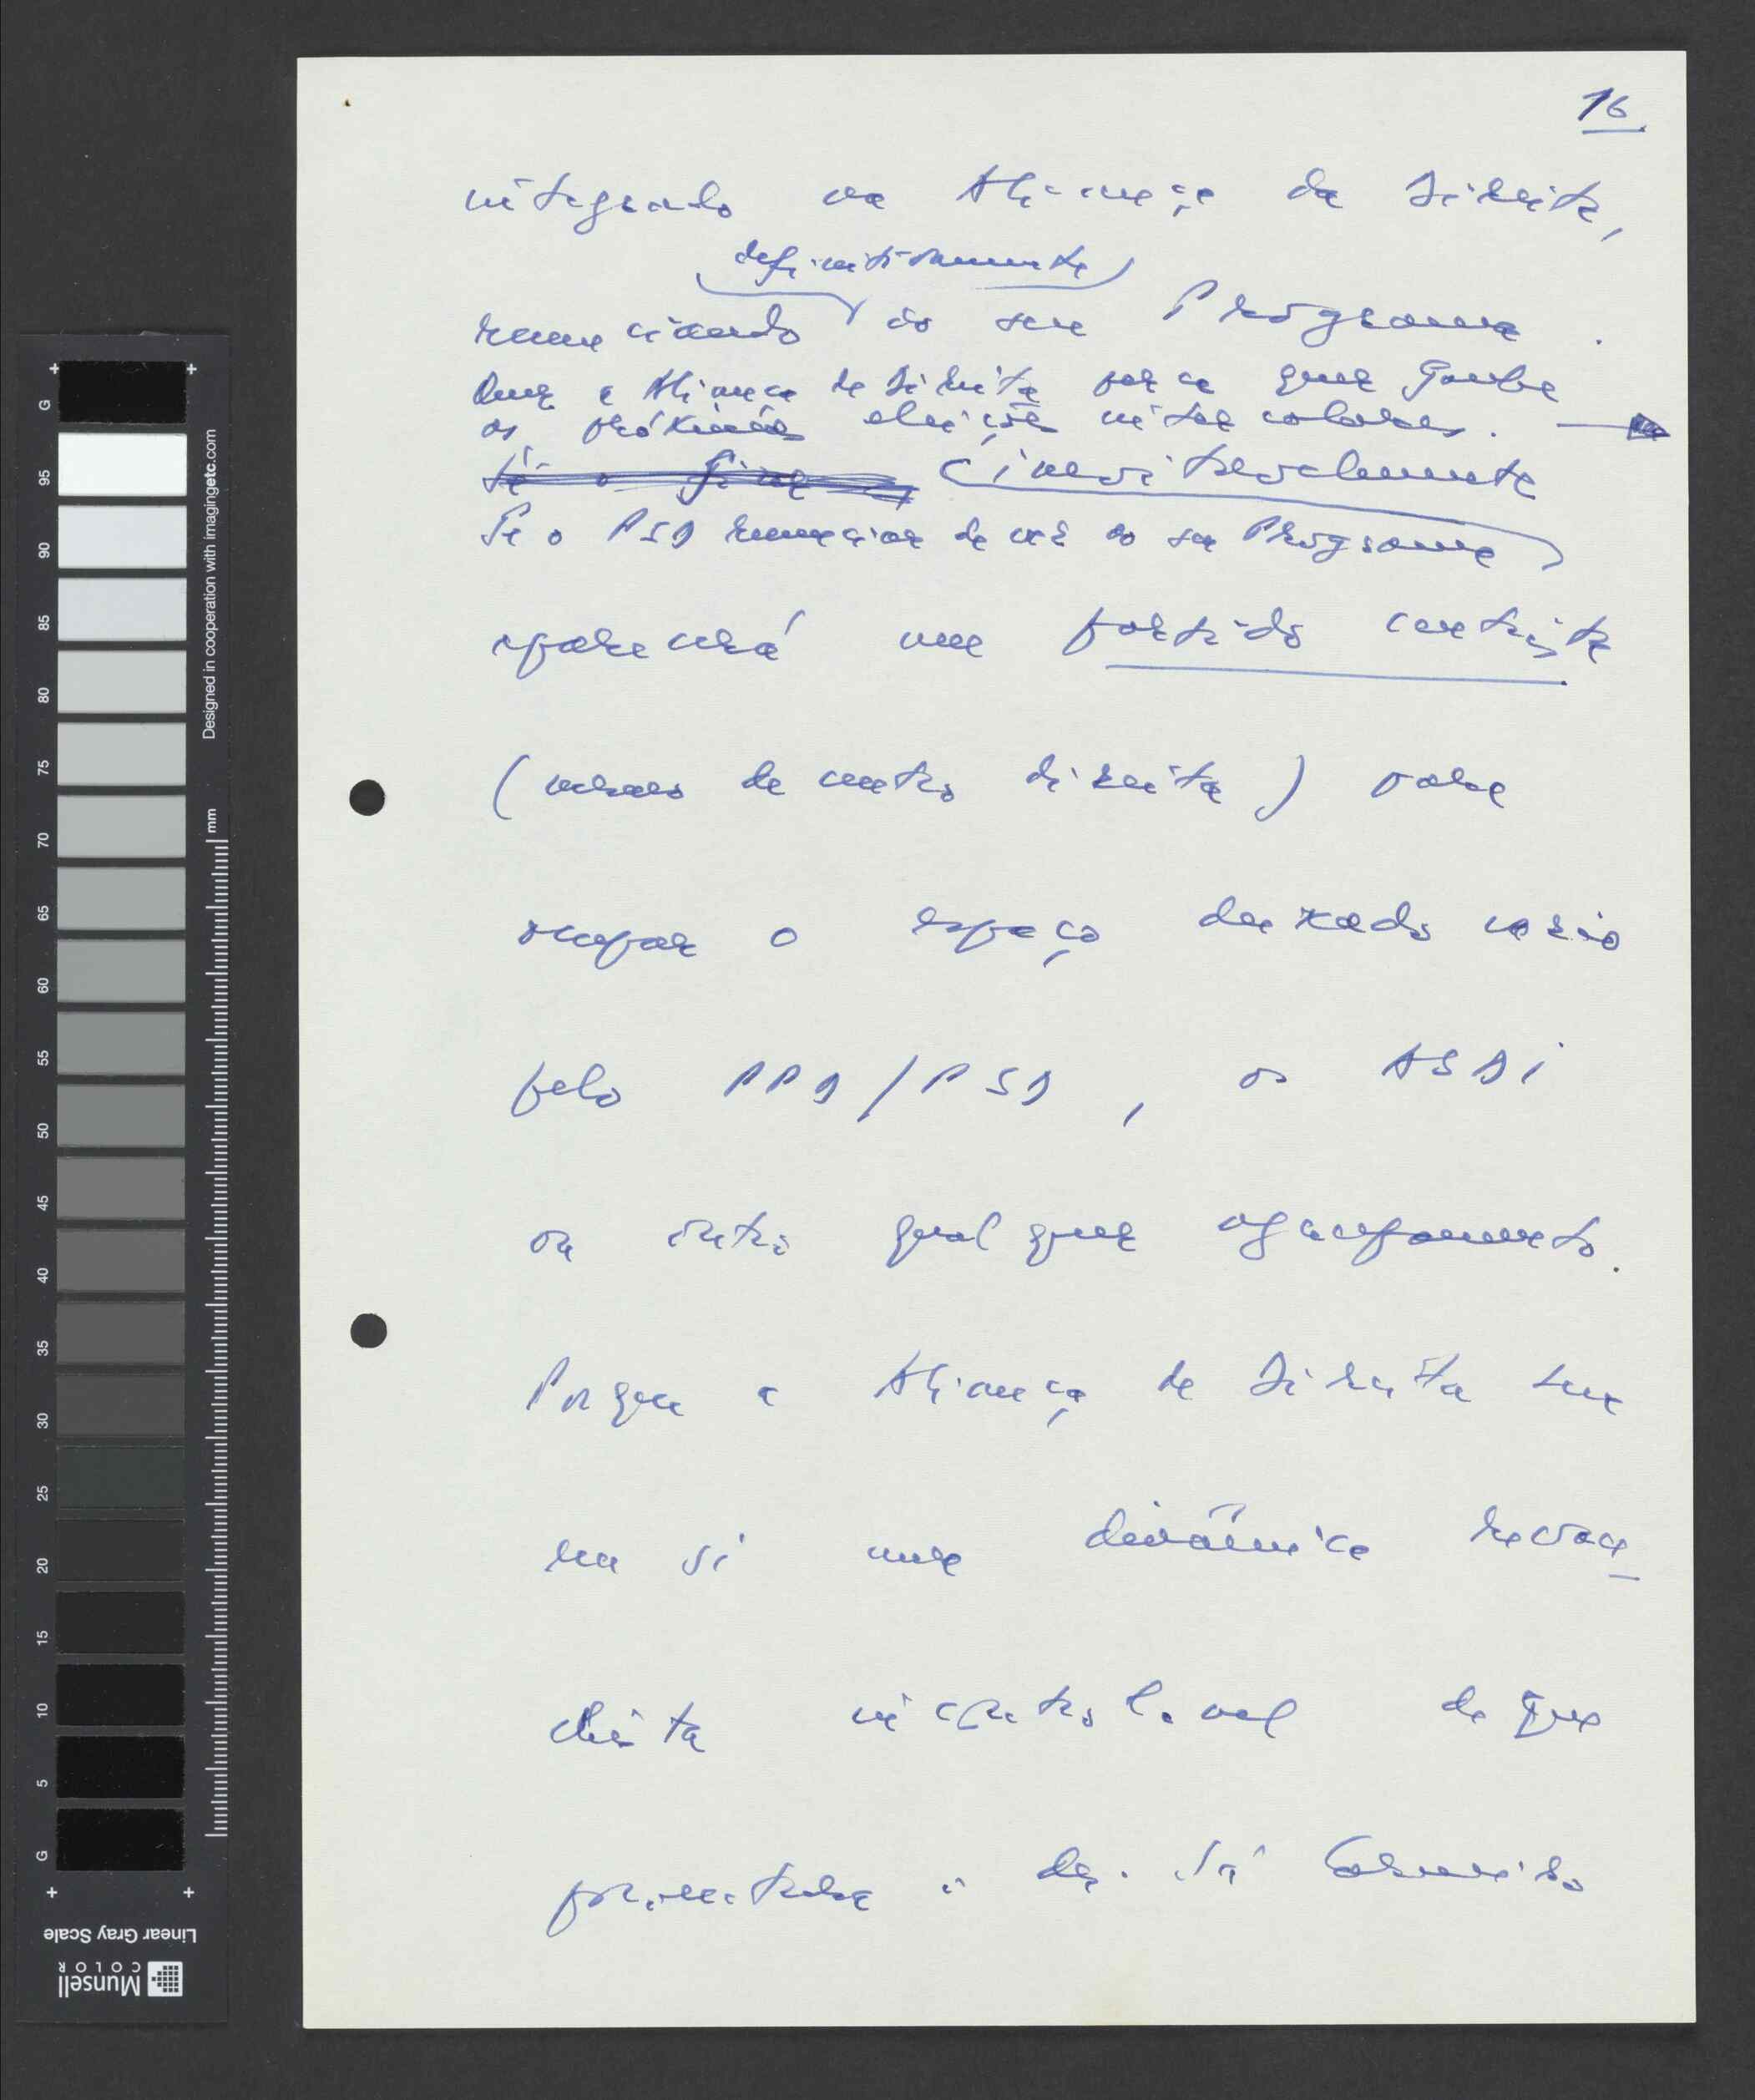 16.
integrado na Aliança da Direita,
definitivamente
renunciando ao seu Programa.
Quer a Aliança de Direita perca quer ganhe
as próximas eleições intercalares.
inevitavelmente
Se o PSD renunciar de vez ao seu Programa
aparecerá um partido centrista
(versus de centro direita) para
ocupar o espaço deixado vazio
pelo PPD/PSD, os ASDI
ou outro qualquer agrupamento.
Porque a Aliança de Direita tem
em si uma dinâmica revan
chista incontrolável de que
prisioneiro o dr. Sá Carneiro
G 95 90 85 80 75 70 65 60 55 50 45 40 35 30 25 20 15 10 5 G
Designed in cooperation with imagingetc.com
mm
Linear Gray Scale
Munsell
COLOR